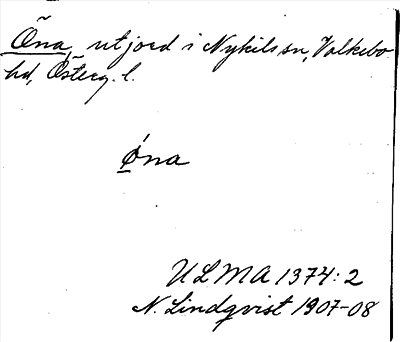 Õna, utjord i Nykils sn, Valkebo
hd, Österg. l.
Øna
ULMA 1374:2
N. Lindqvist 1907-08